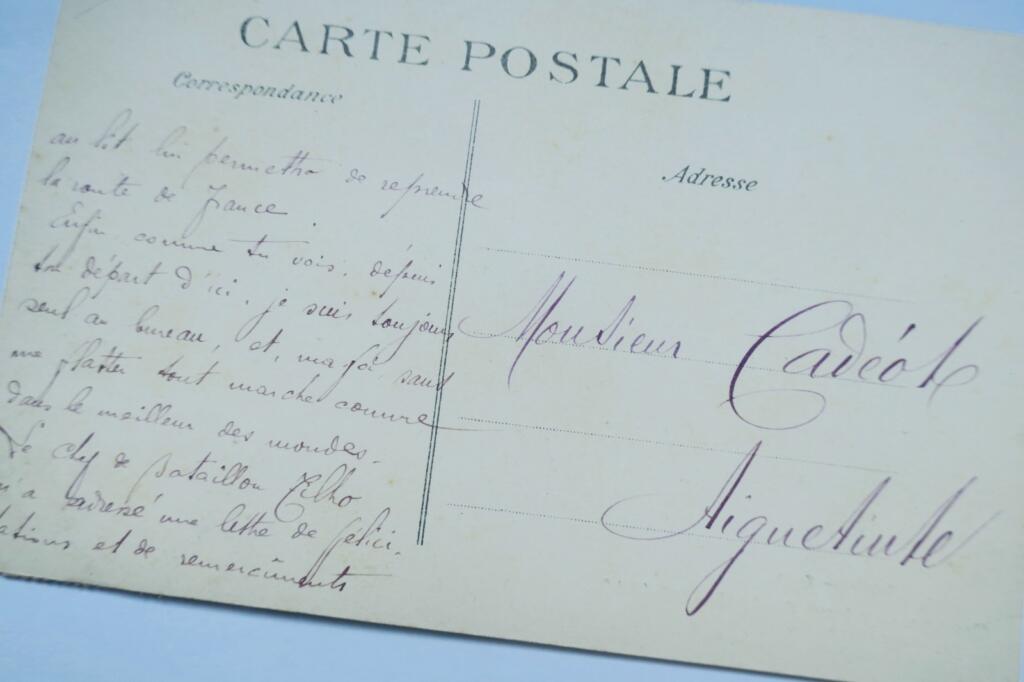 CARTE POSTALE
Correspondance
Adresse
au lit lui permettra de reprendre
la route de France.
Enfin comme tu vois, depuis
ton départ d'ici, je suis toujours
seul au bureau, et, ma foi sans
me flatter tout marche comme
dans le meilleur des mondes.
Le chef de bataillon Tilho
m'a adressé une lettre de félici-
tations et de remerciements
Monsieur Cadéot
Aiguetinte